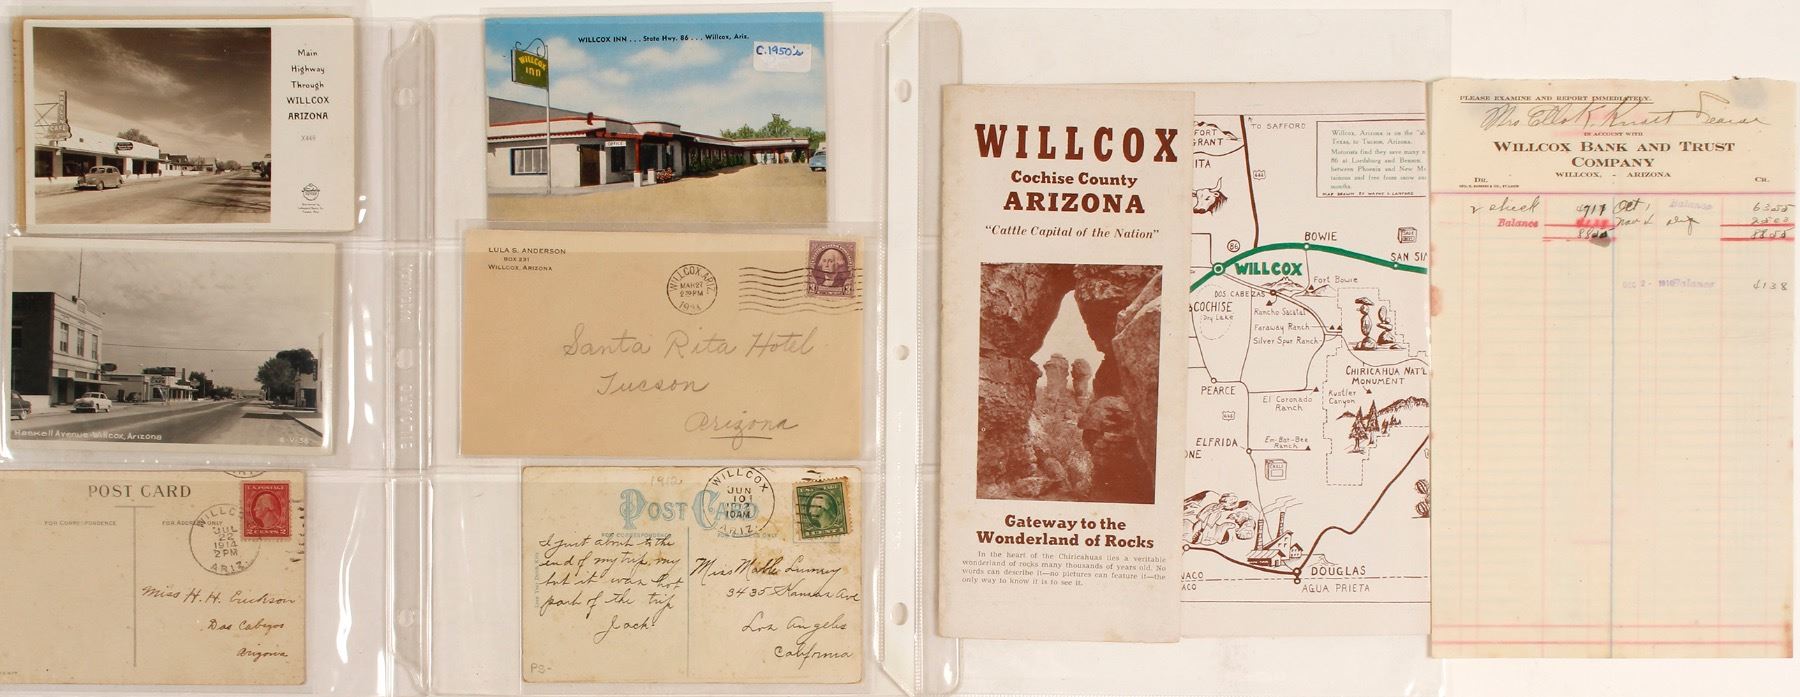 Main
Highway
Through
WILLCOX
ARIZONA
X449
CAFE
WILLCOX INN . . . State Hwy. 86 . . . Willcox, Ariz.
C.1950's
WILLCOX
INN
OFFICE
Haskell Avenue-Willcox, Arizona
LULA S. ANDERSON
BOX 231
WILLCOX, ARIZONA
WILLCOX, ARIZ.
MAR 27
2 30 PM
3
Santa Rita Hotel
Tucson
Arizona
POST CARD
FOR CORRESPONDENCE
FOR ADDRESS ONLY
U.S. POSTAGE
2 CENTS 2
WILLCOX
JUL
22
1914
2 PM
ARIZ.
Miss H. H. Erickson
Dos Cabezos
Arizona
1912
POST CARD
FOR CORRESPONDENCE
WILLCOX
JUN
10
1912
10 AM
ARIZ.
I just about to the
end of my trip, my
but it was hot
part of the trip
Jack
Miss Mable Lumrey
3435 Kansas Ave
Los Angeles
California
PS-
WILLCOX
Cochise County
ARIZONA
"Cattle Capital of the Nation"
Gateway to the
Wonderland of Rocks
In the heart of the Chiricahuas lies a veritable
wonderland of rocks many thousands of years old. No
words can describe it—no pictures can feature it—the
only way to know it is to see it.
FORT
GRANT
TO SAFFORD
Willcox, Arizona is on the
Texas, to Tucson, Arizona.
Motorists find they save many
86 at Lordsburg and Benson,
between Phoenix and New
famous and free from snow
months.
MAP DRAWN BY WAYNE S. LANFORD
86
BOWIE
SAN SI
WILLCOX
Fort Bowie
DOS CABEZAS
COCHISE
(Dry Lake)
Rancho Sacatal
Faraway Ranch
Silver Spur Ranch
CHIRICAHUA NAT'L
MONUMENT
PEARCE
666
El Coronado
Ranch
Rustler
Canyon
ELFRIDA
Em-Bar-Bee
Ranch
DOUGLAS
AGUA PRIETA
PLEASE EXAMINE AND REPORT IMMEDIATELY.
IN ACCOUNT WITH
WILLCOX BANK AND TRUST
COMPANY
WILLCOX, - ARIZONA
DR.
CR.
2 check
Oct 1
Balance
6355
Balance
Nov
2503
DEC 2 - 1910 Balance
4138